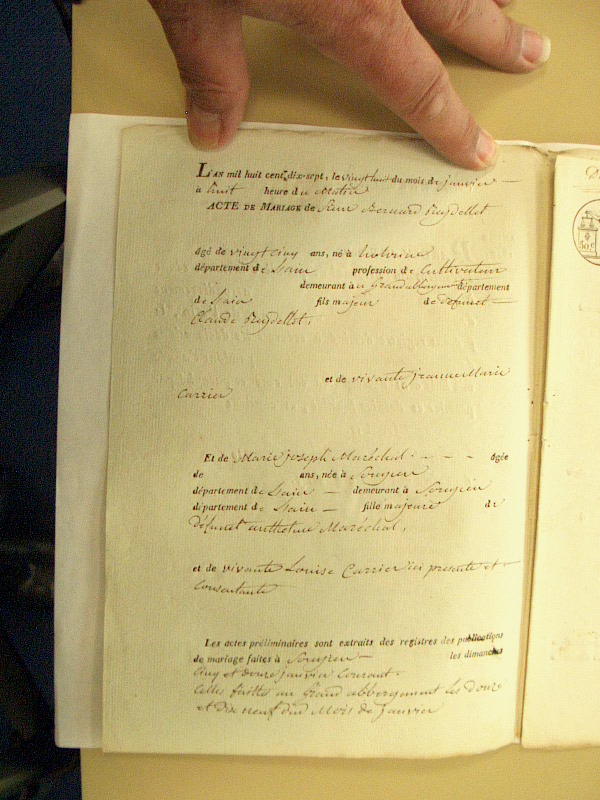 L'AN mil huit cent dix-sept, le vingt huit du mois de janvier
à huit heure du matin
ACTE DE MARIAGE de Bernard Puydellet
âgé de vingt cinq ans, né à
département de l'ain profession de Cultivateur
demeurant à u Grand abbergement département
de l'ain fils majeur de défunct
Claude Puydellet,
et de vivante jeanne Marie
Carrier
Et de Marie joseph Maréchal âgée
de ans, née à Songieu
département de l'ain demeurant à Songieu
département de l'ain fille majeure de
défunct anthelme Maréchal,
et de vivante Louise Carrier ici presente et
Consentante
Les actes préliminaires sont extraits des registres des publications
de mariage faites à Songieu les dimanches
Cinq et douze janvier Courant.
Celles faittes au Grand abbergement les douze
et dix neuf dud Mois de janvier